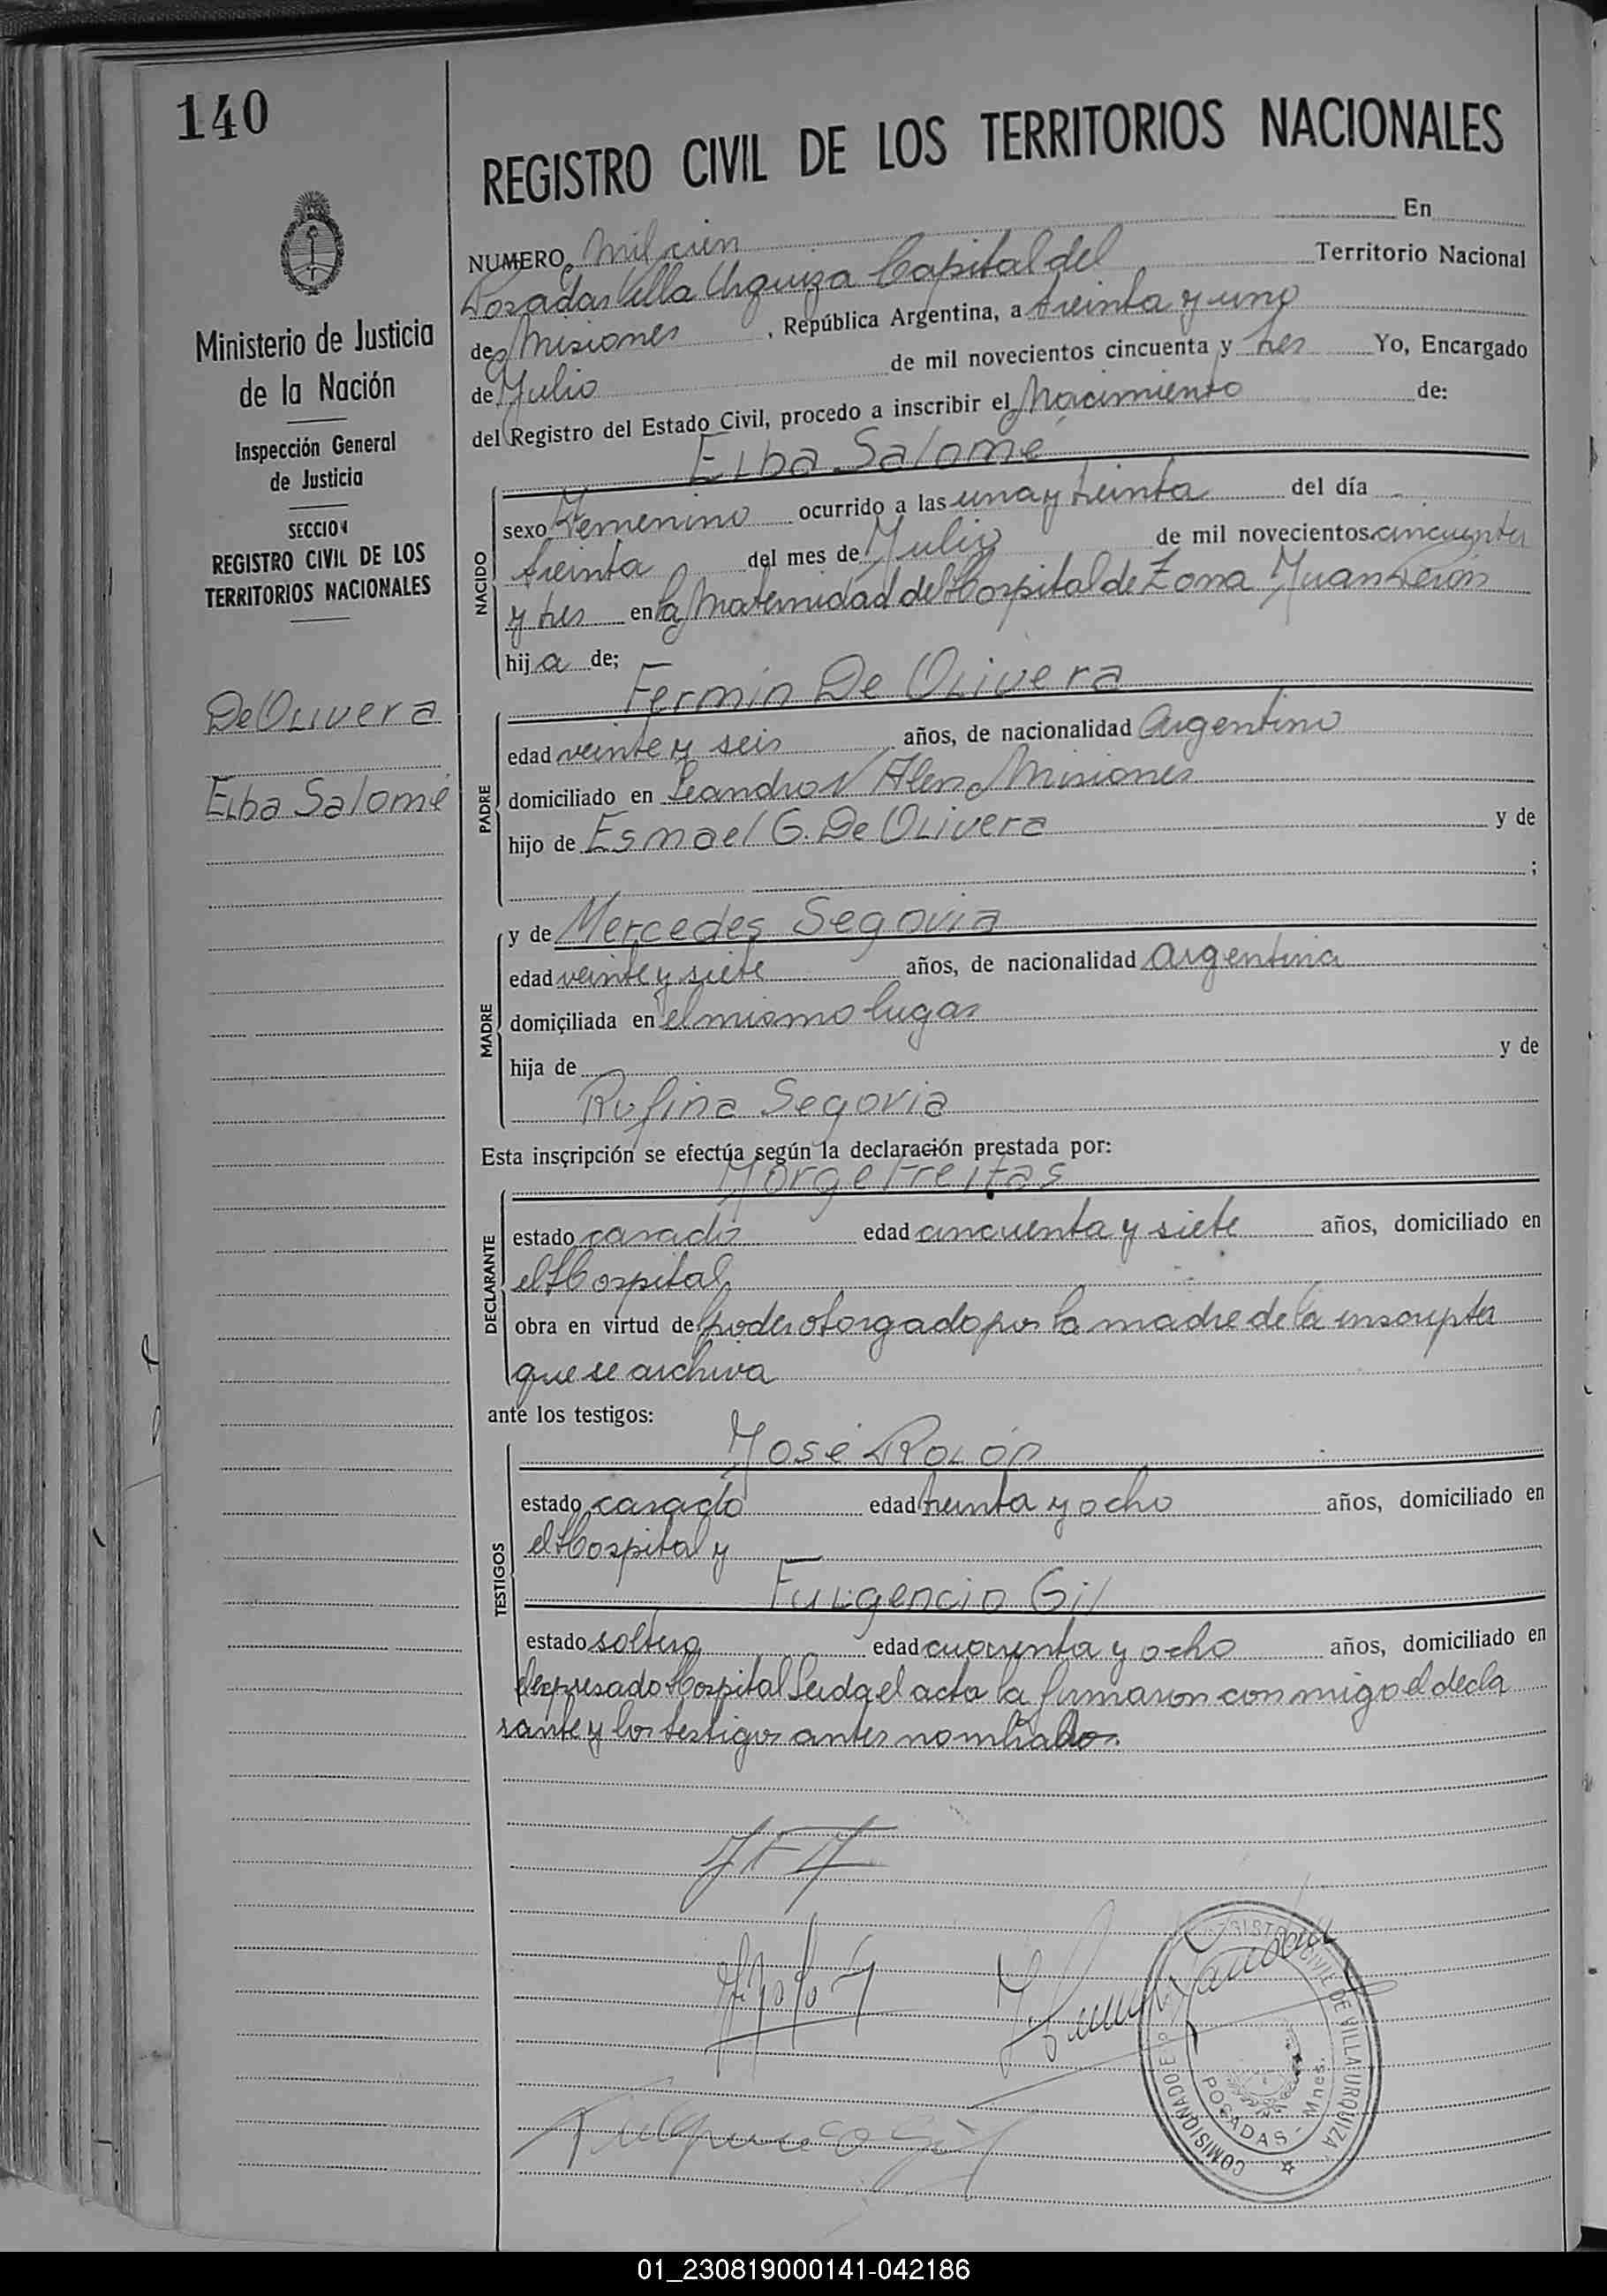 140
REGISTRO CIVIL DE LOS TERRITORIOS NACIONALES
Ministerio de Justicia
de la Nación
Inspección General
de Justicia
SECCION
REGISTRO CIVIL DE LOS
TERRITORIOS NACIONALES
De Olivera
Elba Salomé
NUMERO Mil cien En
Posadas Villa Urquiza Capital del Territorio Nacional
de Misiones, República Argentina, a treinta y uno
de Julio de mil novecientos cincuenta y tres Yo, Encargado
del Registro del Estado Civil, procedo a inscribir el Nacimiento de:
Elba Salomé
NACIDO
sexo Femenino ocurrido a las una y treinta del día
treinta del mes de Julio de mil novecientos cincuenta
y tres en la Maternidad del Hospital de Zona Juan Perón
hija de;
Fermin De Olivera
PADRE
edad veinte y seis años, de nacionalidad Argentino
domiciliado en Leandro N Alem Misiones
hijo de Esmael G. De Olivera y de
;
y de Mercedes Segovia
MADRE
edad veinte y siete años, de nacionalidad argentina
domiciliada en el mismo lugar
hija de y de
Rufina Segovia
Esta inscripción se efectúa según la declaración prestada por:
Jorge Freitas
DECLARANTE
estado casado edad cincuenta y siete años, domiciliado en
el Hospital
obra en virtud del poder otorgado por la madre de la inscripta
que se archiva
ante los testigos:
José Rolón
TESTIGOS
estado casado edad treinta y ocho años, domiciliado en
el Hospital y
Fulgencio Gil
estado soltero edad cuarenta y ocho años, domiciliado en
el expresado Hospital Leida el acta la firmaron con migo el decla
rante y los testigos antes nombrados.
Fulgencio Gil
REGISTRO CIVIL DE VILLA URQUIZA
COMISIONADO E.P.
POSADAS - Mnes.
01_230819000141-042186